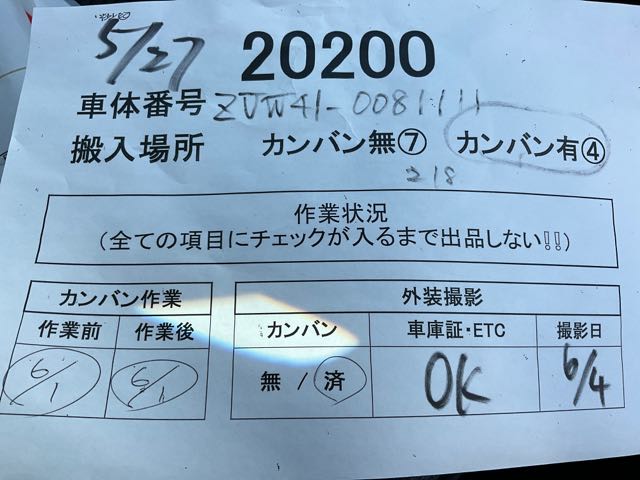 5/27 20200
車体番号 ZVW41-0081111
搬入場所 カンバン無⑦ カンバン有④
218
作業状況
(全ての項目にチェックが入るまで出品しない!!)
カンバン作業 外装撮影
作業前 作業後 カンバン 車庫証・ETC 撮影日
6/1 6/1 無 / 済 OK 6/4